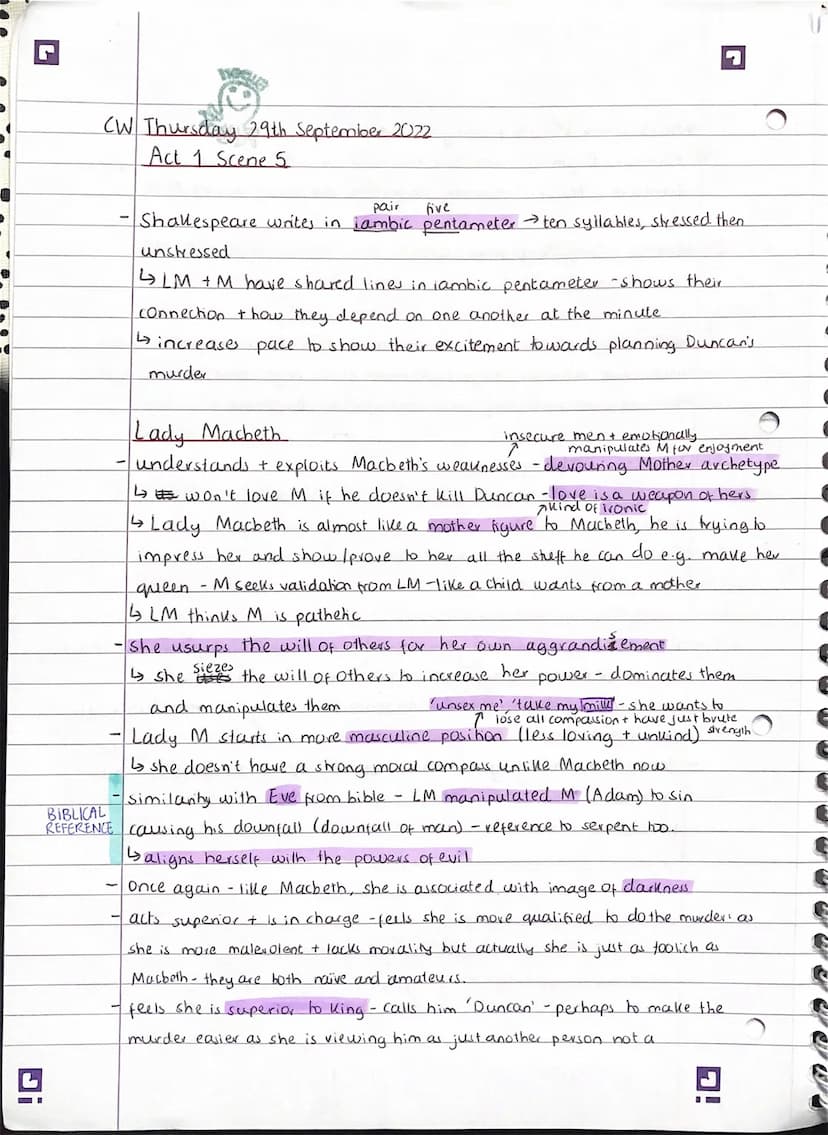 CW Thursday 29th September 2022
Act 1 Scene 5
pair five
- Shakespeare writes in iambic pentameter → ten syllables, stressed then
unstressed
↳ LM + M have shared lines in iambic pentameter - shows their
connection + how they depend on one another at the minute
↳ increases pace to show their excitement towards planning Duncan's
murder
Lady Macbeth
insecure men + emotionally
manipulates M for enjoyment
- understands + exploits Macbeth's weaknesses - devouring Mother archetype
↳ won't love M if he doesn't kill Duncan - love is a weapon of hers
↗ kind of ironic
↳ Lady Macbeth is almost like a mother figure to Macbeth, he is trying to
impress her and show/prove to her all the stuff he can do e.g. make her
queen - M seeks validation from LM - like a child wants from a mother
↳ LM thinks M is pathetic
- she usurps the will of others for her own aggrandisement
↳ she siezes the will of others to increase her power - dominates them
and manipulates them 'unsex me' 'take my milk' - she wants to
↗ lose all compassion + have just brute
strength
- Lady M starts in more masculine position (less loving + unkind)
↳ she doesn't have a strong moral compass unlike Macbeth now
BIBLICAL
REFERENCE
- similarity with Eve from bible - LM manipulated M (Adam) to sin
causing his downfall (downfall of man) - reference to serpent too.
↳ aligns herself with the powers of evil
- Once again - like Macbeth, she is associated with image of darkness
- acts superior + is in charge - feels she is more qualified to do the murder as
she is more malevolent + lacks morality but actually she is just as foolish as
Macbeth - they are both naïve and amateurs.
- feels she is superior to King - calls him 'Duncan' - perhaps to make the
murder easier as she is viewing him as just another person not a